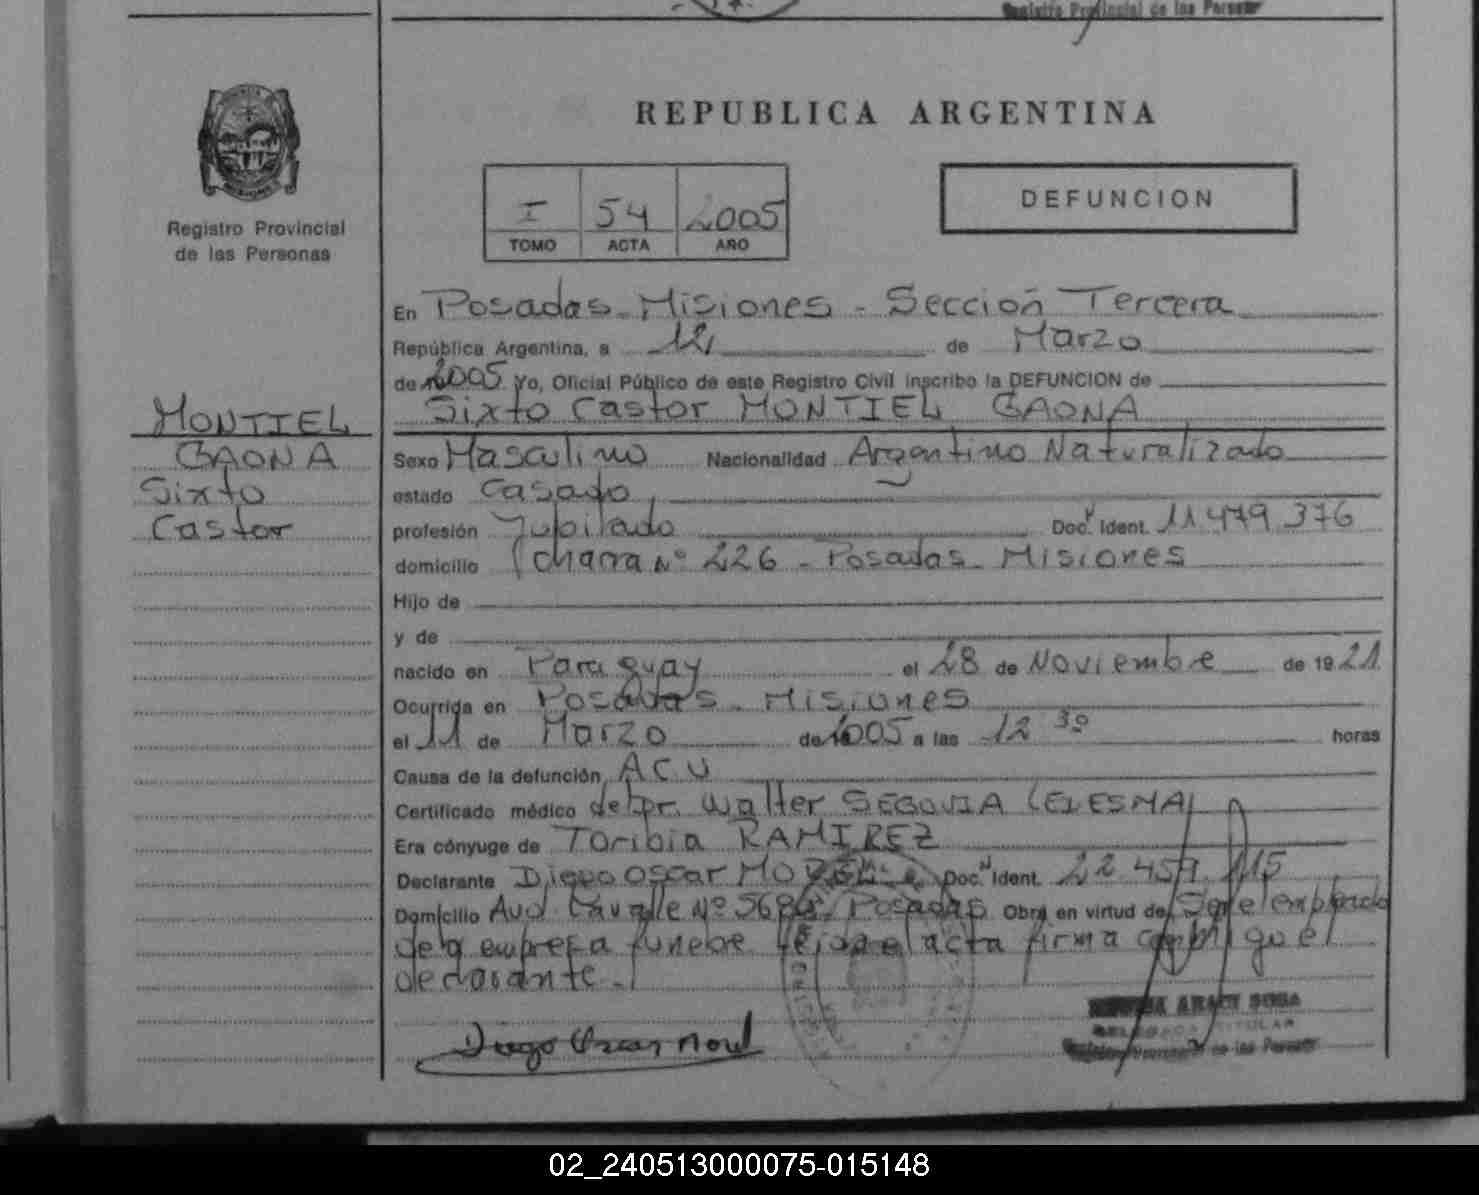 Registro Provincial de las Personas
REPUBLICA ARGENTINA
I 54 2005
TOMO ACTA AÑO
DEFUNCION
Registro Provincial
de las Personas
En Posadas - Misiones - Sección Tercera
República Argentina, a 12 de Marzo
de 2005 Yo, Oficial Público de este Registro Civil inscribo la DEFUNCION de
Sixto Castor MONTIEL GAONA
MONTIEL
GAONA
Sixto
Castor
Sexo Masculino Nacionalidad Argentino Naturalizado
estado Casado
profesión Jubilado Doc. Ident. 11.479.376
domicilio Chacra Nº 226 - Posadas - Misiones
Hijo de
y de
nacido en Paraguay el 28 de Noviembre de 1921
Ocurrida en Posadas - Misiones
el 11 de Marzo de 2005 a las 12 30 horas
Causa de la defunción ACV
Certificado médico del Dr. Walter SEGOVIA LEDESMA
Era cónyuge de Toribia RAMIREZ
Declarante Diego Oscar MOREL Doc. Ident. 22.459.115
Domicilio Avd. Lavalle Nº 5698 Posadas Obra en virtud de Ser el empleado
de la empresa funebre leida el acta firma conmigo el
declarante.
Diego Oscar Morel
SOSA
TITULAR
de las Personas
02_240513000075-015148